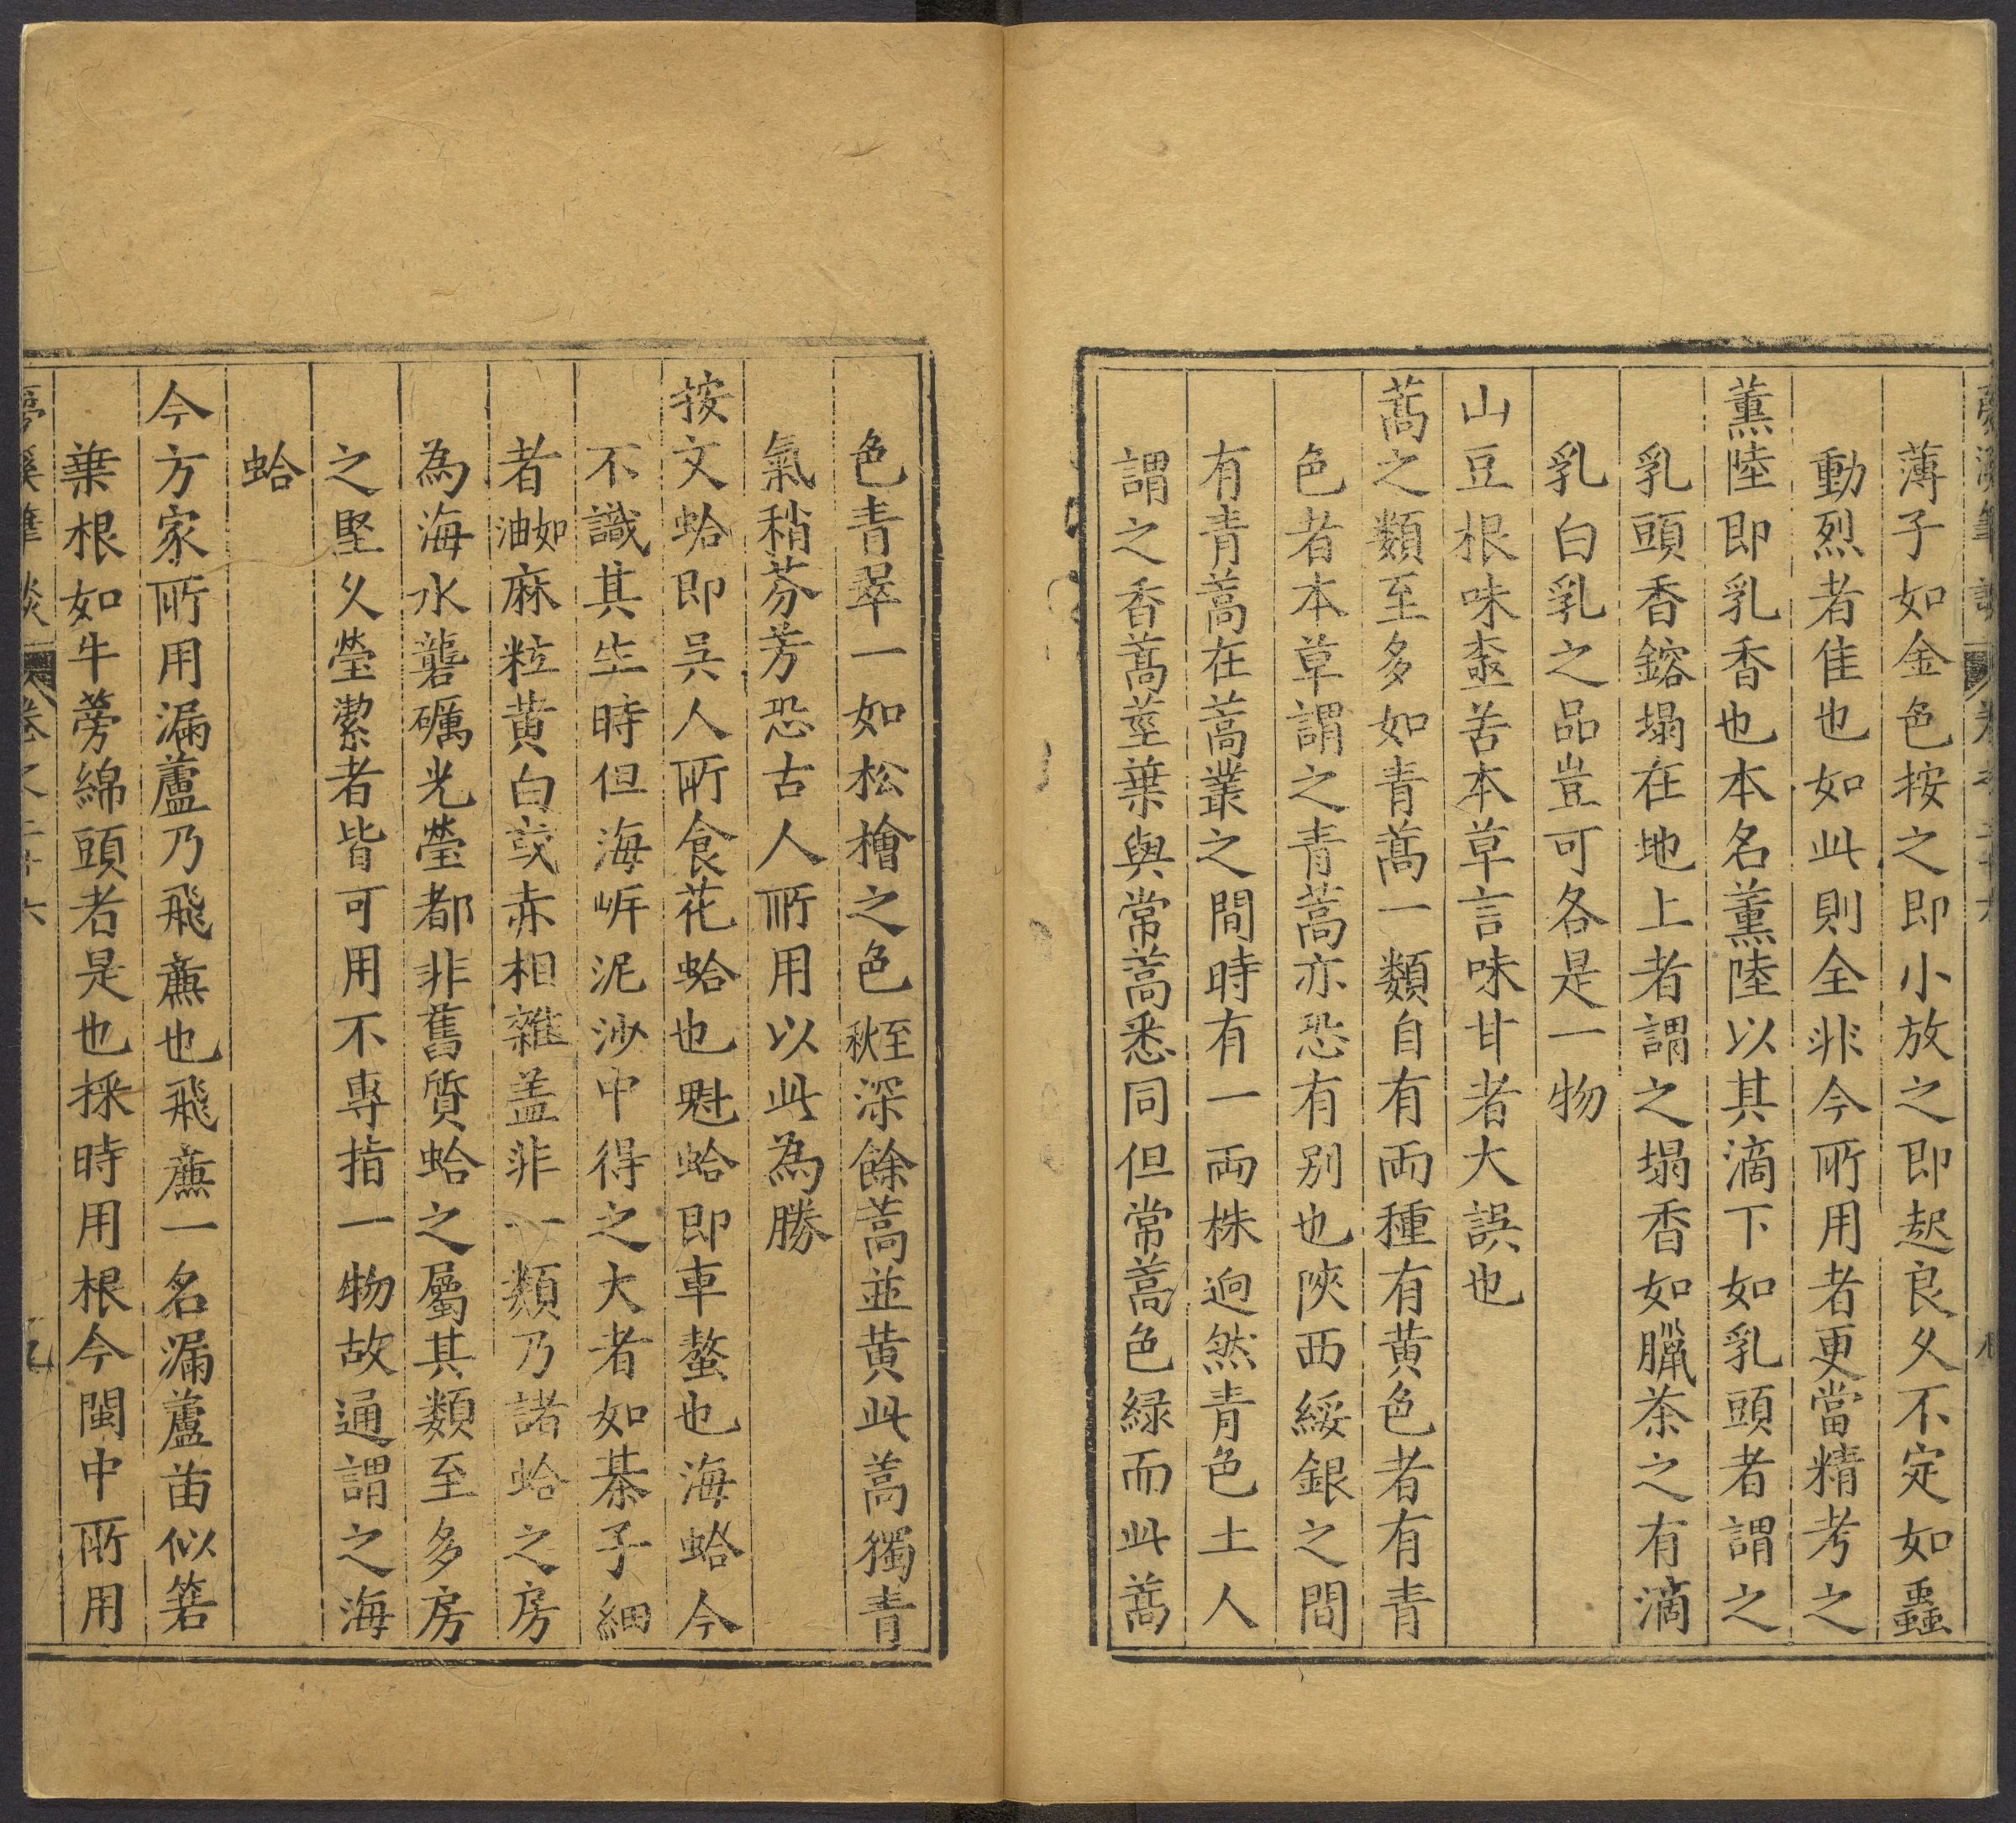 薄子如金色按之即小放之即起良久不定如蟲
動烈者佳也如此則全非今所用者更當精考之
薰陸即乳香也本名薰陸以其滴下如乳頭者謂之
乳頭香鎔塌在地上者謂之塌香如臘茶之有滴
乳白乳之品豈可各是一物
山豆根味極苦本草言味甘者大誤也
蒿之類至多如青蒿一類自有兩種有黃色者有青
色者本草謂之青蒿亦恐有别也陝西綏銀之間
有青蒿在蒿叢之間時有一兩株逈然青色土人
謂之香蒿莖葉與常蒿悉同但常蒿色緑而此蒿
色青翠一如松檜之色至秋深餘蒿並黃此蒿獨青
氣稍芬芳恐古人所用以此為勝
按文蛤即吳人所食花蛤也魁蛤即車螯也海蛤今
不識其生時但海岸泥沙中得之大者如棊子細
者如油麻粒黃白或赤相雜盖非一類乃諸蛤之房
為海水礲礪光瑩都非舊質蛤之屬其類至多房
之堅久瑩潔者皆可用不專指一物故通謂之海
蛤
今方家所用漏蘆乃飛廉也飛廉一名漏蘆苗似箬
葉根如牛蒡綿頭者是也採時用根今閩中所用
夢溪筆談 卷之二十六